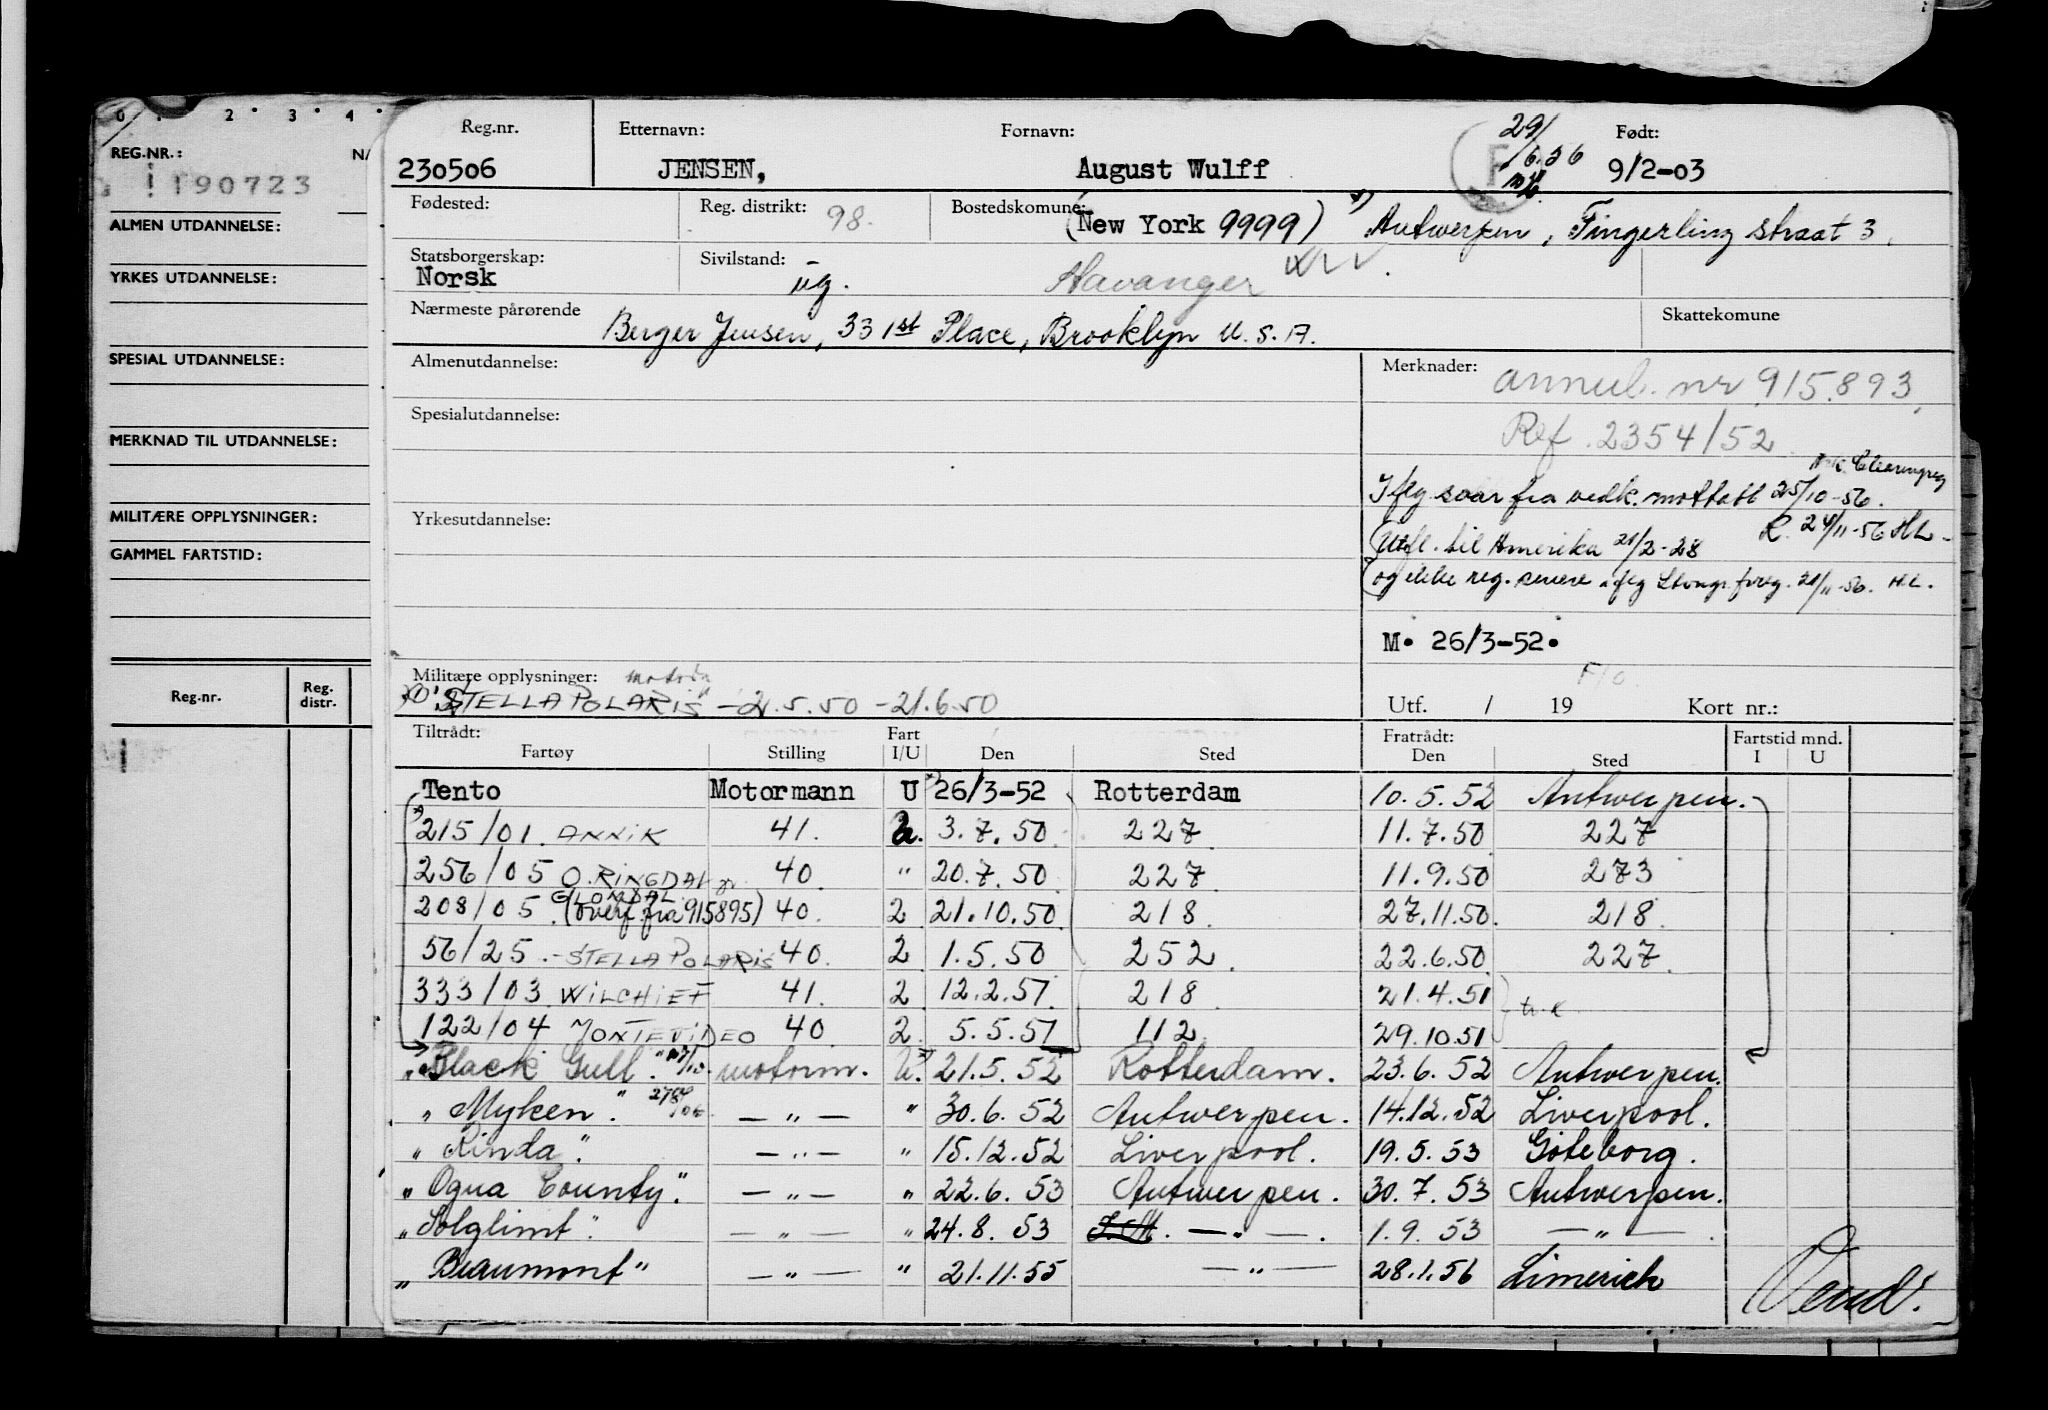 0 . 2 . 3 . 4 .
REG.NR.:
190723
ALMEN UTDANNELSE:
YRKES UTDANNELSE:
SPESIAL UTDANNELSE:
MERKNAD TIL UTDANNELSE:
MILITÆRE OPPLYSNINGER:
GAMMEL FARTSTID:
Reg.nr. Reg. distr.
Reg.nr. Etternavn: Fornavn: Født:
230506 JENSEN, August Wulff 29/6.56 9/2-03
Fødested: Reg. distrikt: 98. Bostedskommune: (New York 9999) x) Antwerpen, Fingerling straat 3.
Statsborgerskap: Norsk Sivilstand: ug. Stavanger
Nærmeste pårørende Berger Jensen, 33 1st Place, Brooklyn U.S.A. Skattekomune
Almenutdannelse: Merknader: annul. nr 915.893
Spesialutdannelse: Ref. 2354/52
Iflg svar fra vedk. mottatt 25/10-56.
Yrkesutdannelse:
Utfl. til Amerika 21/2-28 R. 24/11-56 HL-
og ikke reg. senere iflg Stvngr. freg. 21/11-56. H.L.
M. 26/3-52.
Militære opplysninger:
"STELLA POLARIS" - 21.5.50 - 21.6.50
Utf. / 19 Kort nr.:
Tiltrådt: Fart Fratrådt: Fartstid mnd.
Fartøy Stilling I/U Den Sted Den Sted I U
Tento Motormann U 26/3-52 Rotterdam 10.5.52 Antwerpen.
215/01. ANNIK 41. 2. 3.7.50 227 11.7.50 227
256/05 O. RINGDAL jr. 40. " 20.7.50 227. 11.9.50 273
GLOMDAL
208/05. (overf. fra 915895) 40. 2 21.10.50 218. 27.11.50. 218.
56/25. - STELLA POLARIS 40. 2 1.5.50 252. 22.6.50. 227.
333/03 WILCHIEF 41. 2 12.2.51. 218 21.4.51
122/04 MONTEVIDEO 40. 2. 5.5.51 112 29.10.51
"Black Gull." motorm. U. 21.5.52 Rotterdam. 23.6.52 Antwerpen.
"Myken." — " — " 30.6.52 Antwerpen. 14.12.52 Liverpool.
"Rinda". — " — " 15.12.52 Liverpool. 19.5.53 Göteborg.
"Ogna County". — " — " 22.6.53 Antwerpen. 30.7.53 Antwerpen.
"Solglimt". — " — " 24.8.53 — " —. 1.9.53 — " —.
"Beaumont" — " — " 21.11.55 — " — 28.1.56 Limerick
Vend.